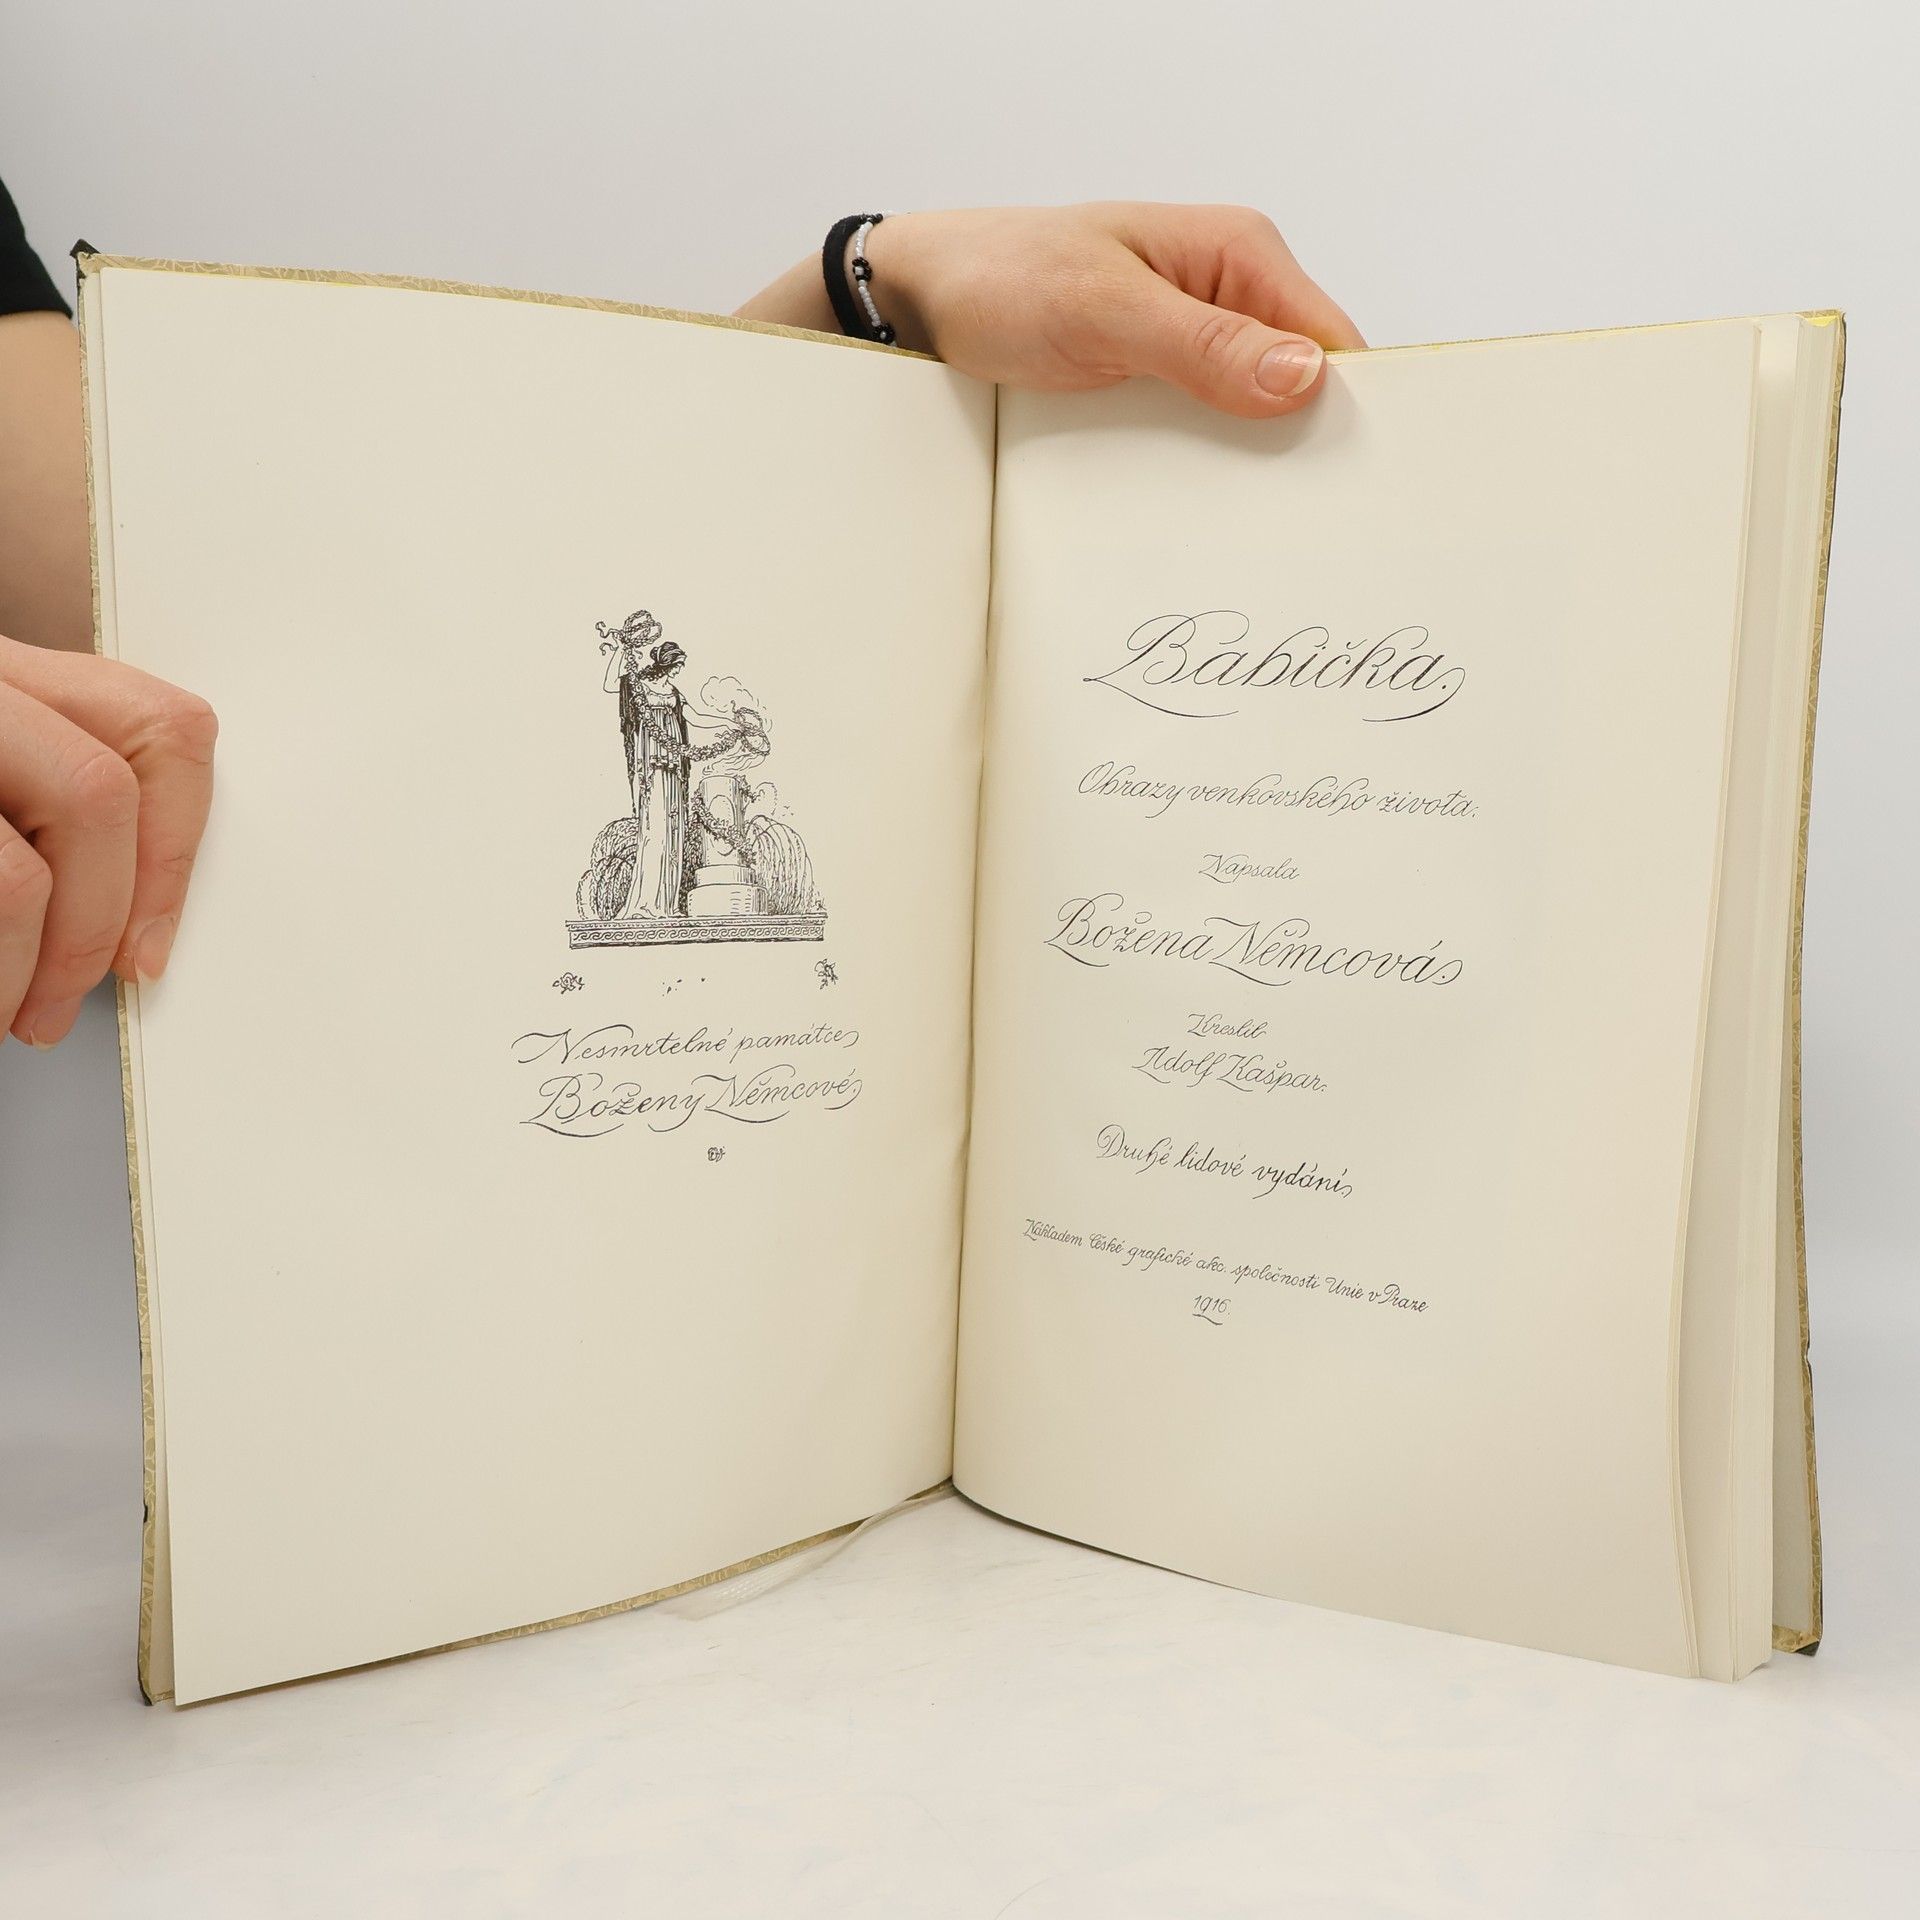 Nesmrtelné památce
Boženy Němcové.
Babička.
Obrazy venkovského života.
Napsala
Božena Němcová.
Kreslil
Adolf Kašpar.
Druhé lidové vydání.
Nákladem České grafické akc. společnosti Unie v Praze
1916.